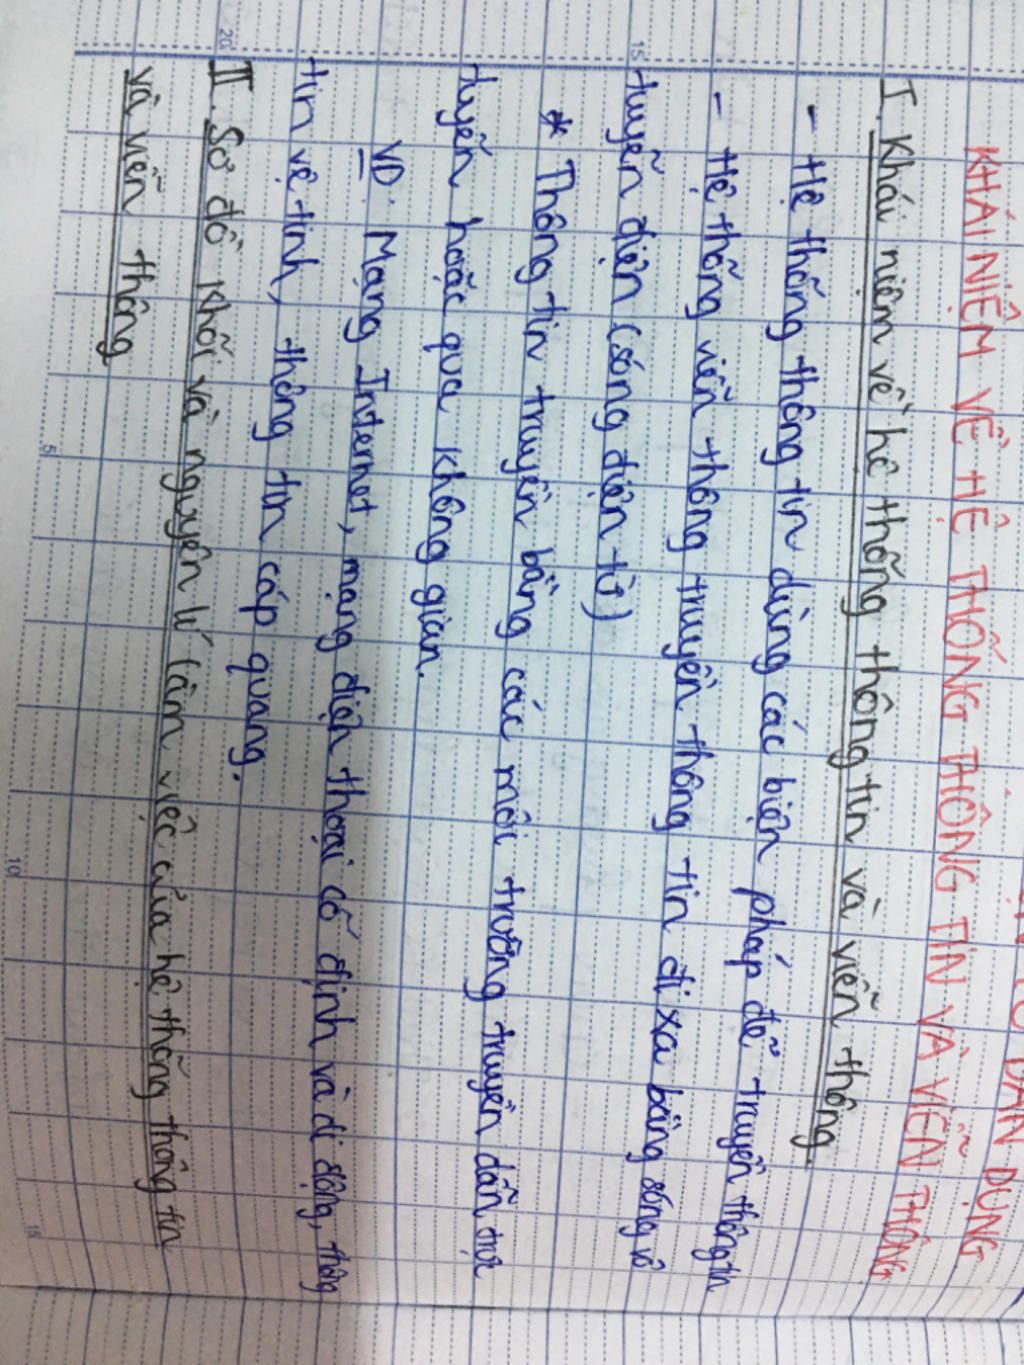 DÂN DỤNG
KHÁI NIỆM VỀ HỆ THỐNG THÔNG TIN VÀ VIỄN THÔNG
I. Khái niệm về hệ thống thông tin và viễn thông.
- Hệ thống thông tin dùng các biện pháp để truyền thông tin
- Hệ thống viễn thông truyền thông tin đi xa bằng sóng vô
tuyến điện (sóng điện từ)
* Thông tin truyền bằng các môi trường truyền dẫn trực
tuyến hoặc qua không gian.
VD: Mạng Internet, mạng điện thoại cố định và di động, thông
tin vệ tinh, thông tin cáp quang.
II. Sơ đồ khối và nguyên lí làm việc của hệ thống thông tin
và viễn thông
20
15
5
10
15